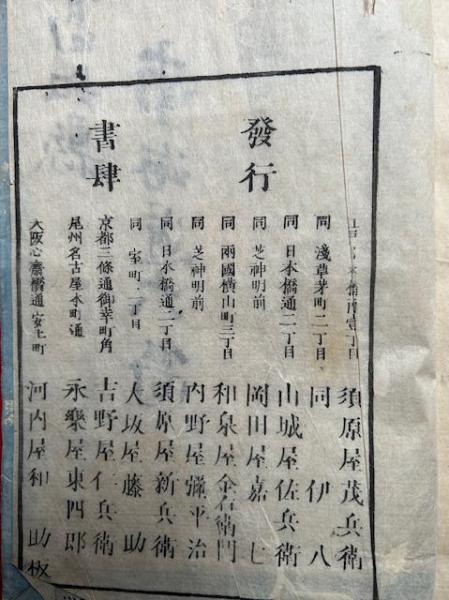 發行
書肆
江戸日本橋南壹丁目 須原屋茂兵衞
同 淺草茅町二丁目 同 伊八
同 日本橋通二丁目 山城屋佐兵衞
同 芝神明前 岡田屋嘉七
同 兩國橫山町三丁目 和泉屋金右衞門
同 芝神明前 內野屋彌平治
同 日本橋通二丁目 須原屋新兵衞
同 室町二丁目 大坂屋藤助
京都三條通御幸町角 吉野屋仁兵衞
尾州名古屋本町通 永樂屋東四郎
大阪心齋橋通安土町 河內屋和助板